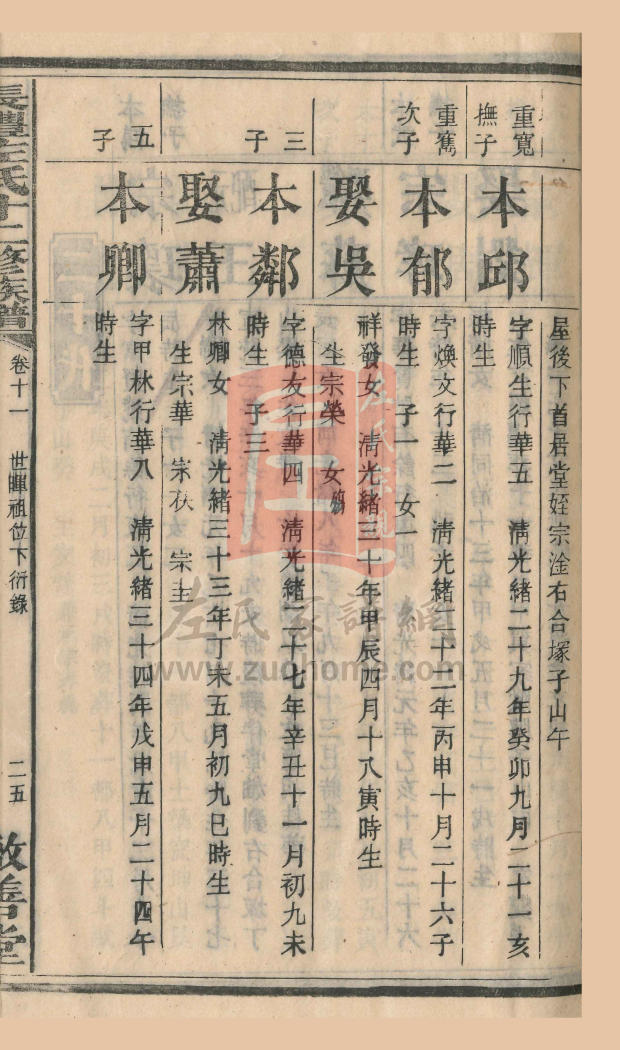 屋後下首居堂姪宗淦右合塚子山午
重寬
撫子
本邱
字順生行華五　清光緒二十九年癸卯九月二十一亥
時生
重寯
次子
本郁
字煥文行華二　清光緒二十二年丙申十月二十六子
時生　子一　女一
娶吳
祥發女　清光緒三十年甲辰四月十八寅時生
生宗榮　女
三
子
本鄰
字德友行華四　清光緒二十七年辛丑十一月初九未
時生　子三
娶蕭
林卿女　清光緒三十三年丁未五月初九巳時生
生宗華　宗秋　宗主
五
子
本卿
字甲林行華八　清光緒三十四年戊申五月二十四午
時生
長澧左氏十二修族譜
卷十一　世暉祖位下衍錄
二五
敦善堂
左氏家譜網
www.zuohome.com